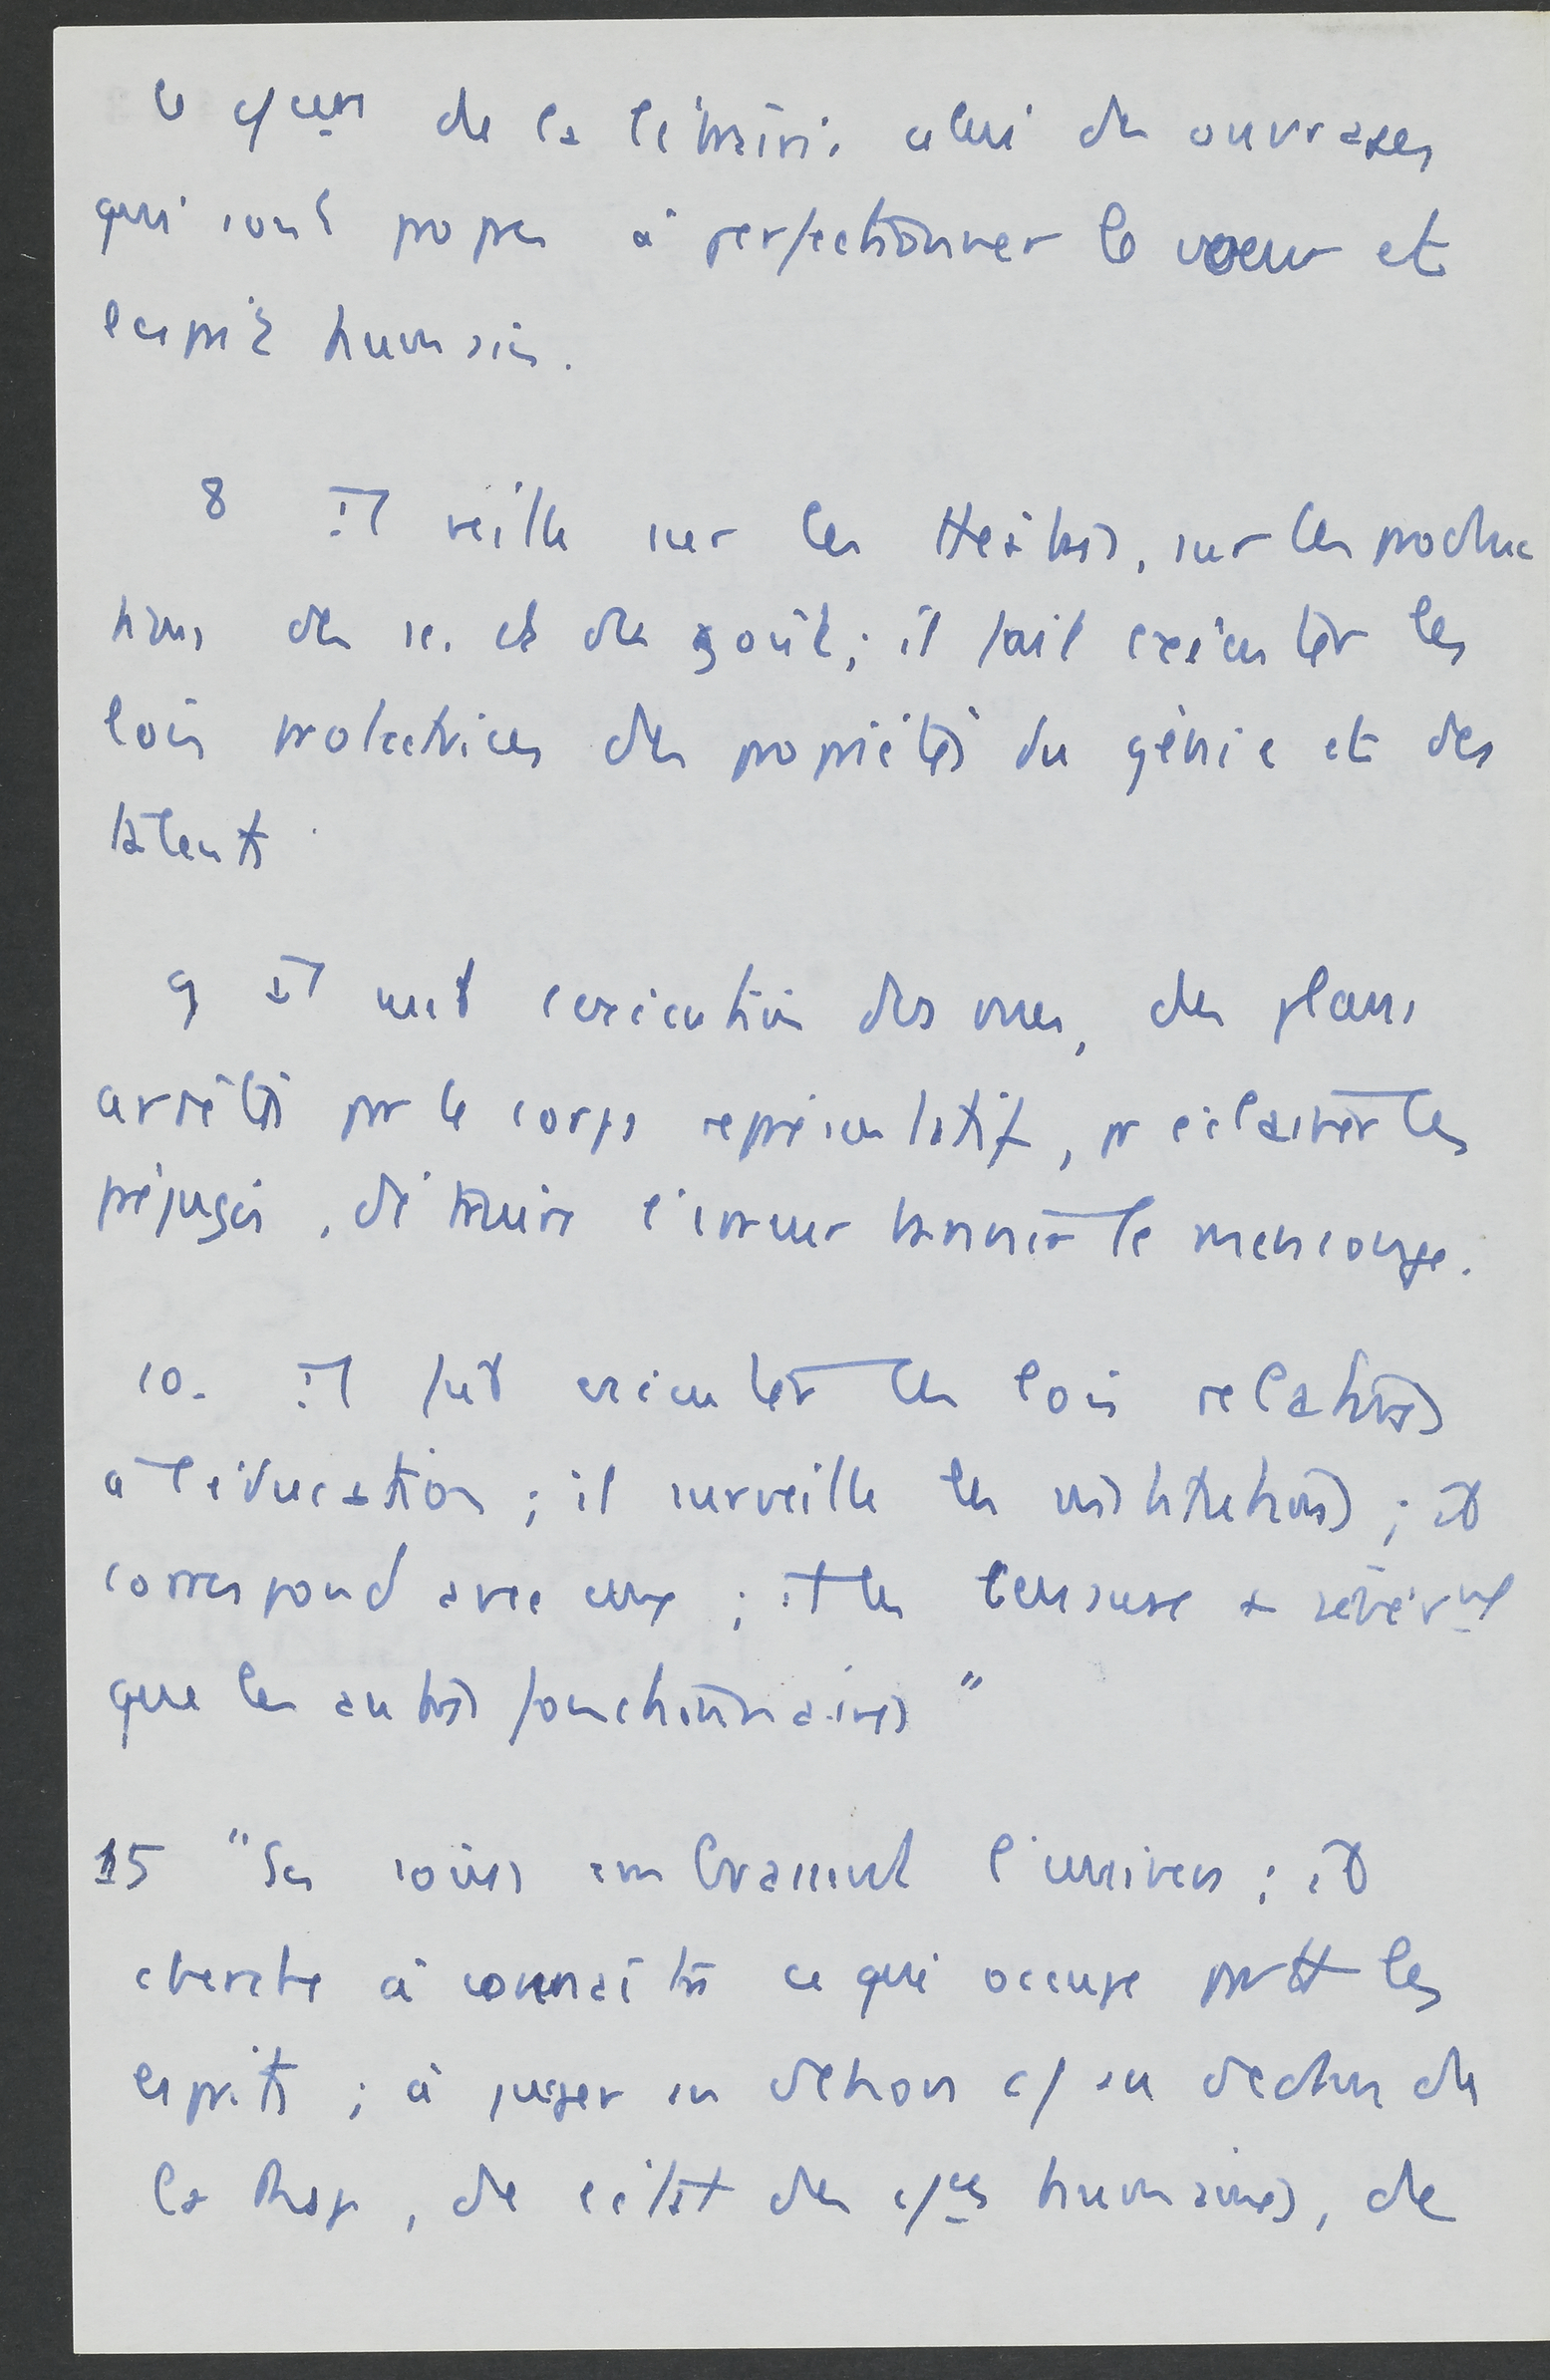 le cce de la librairie celui des ouvrages
qui sont propres à perfectionner le coeur et
l'esprit humain.
8 Il veille sur les théâtres, sur les produc
tions des sc. et du goût ; il fait exécuter les
lois protectrices des propriétés du génie et des
talents.
9 Il met à exécution des vues, des plans
arrêtés par le corps représentatif, pr éclairer les
préjugés, détruire l'erreur bannir le mensonge.
10. Il fait exécuter les lois relatives
à l'éducation ; il surveille les instituteurs ; il
correspond avec eux ; il les censure + sévèrmt
que les autres fonctionnaires "
15 "Ses soins embrassent l'univers ; il
cherche à connaître ce qui occupe partt les
esprits ; à juger au dehors c/ au dedans de
la Rep, de l'état des c/ces humaines, de